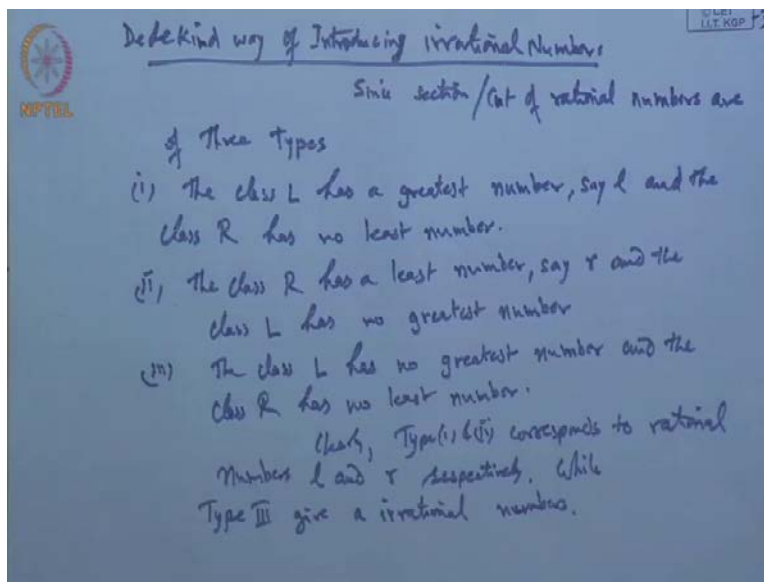 © CET
I.I.T. KGP
NPTEL
Dedekind way of Introducing irrational Numbers
Since section/Cut of rational numbers are
of Three Types
(i) The class L has a greatest number, say l and the
class R has no least number.
(ii) The class R has a least number, say r and the
class L has no greatest number
(iii) The class L has no greatest number and the
class R has no least number.
Clearly, Type (i) & (ii) corresponds to rational
Numbers l and r respectively. While
Type III give a irrational numbers.